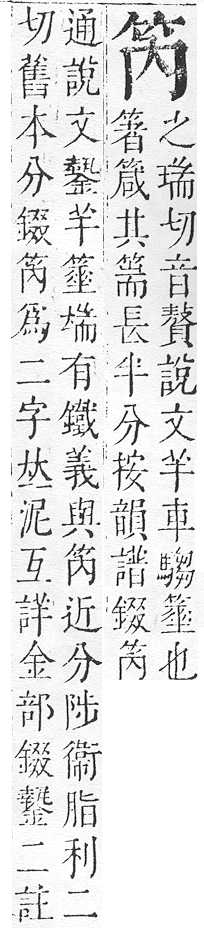 笍之瑞切音贅說文羊車騶箠也
箸箴其耑長半分按韻譜錣笍
通說文䥍羊箠端有鐵義與笍近分陟衞脂利二
切舊本分錣笍爲二字𠀤泥互詳金部錣䥍二註